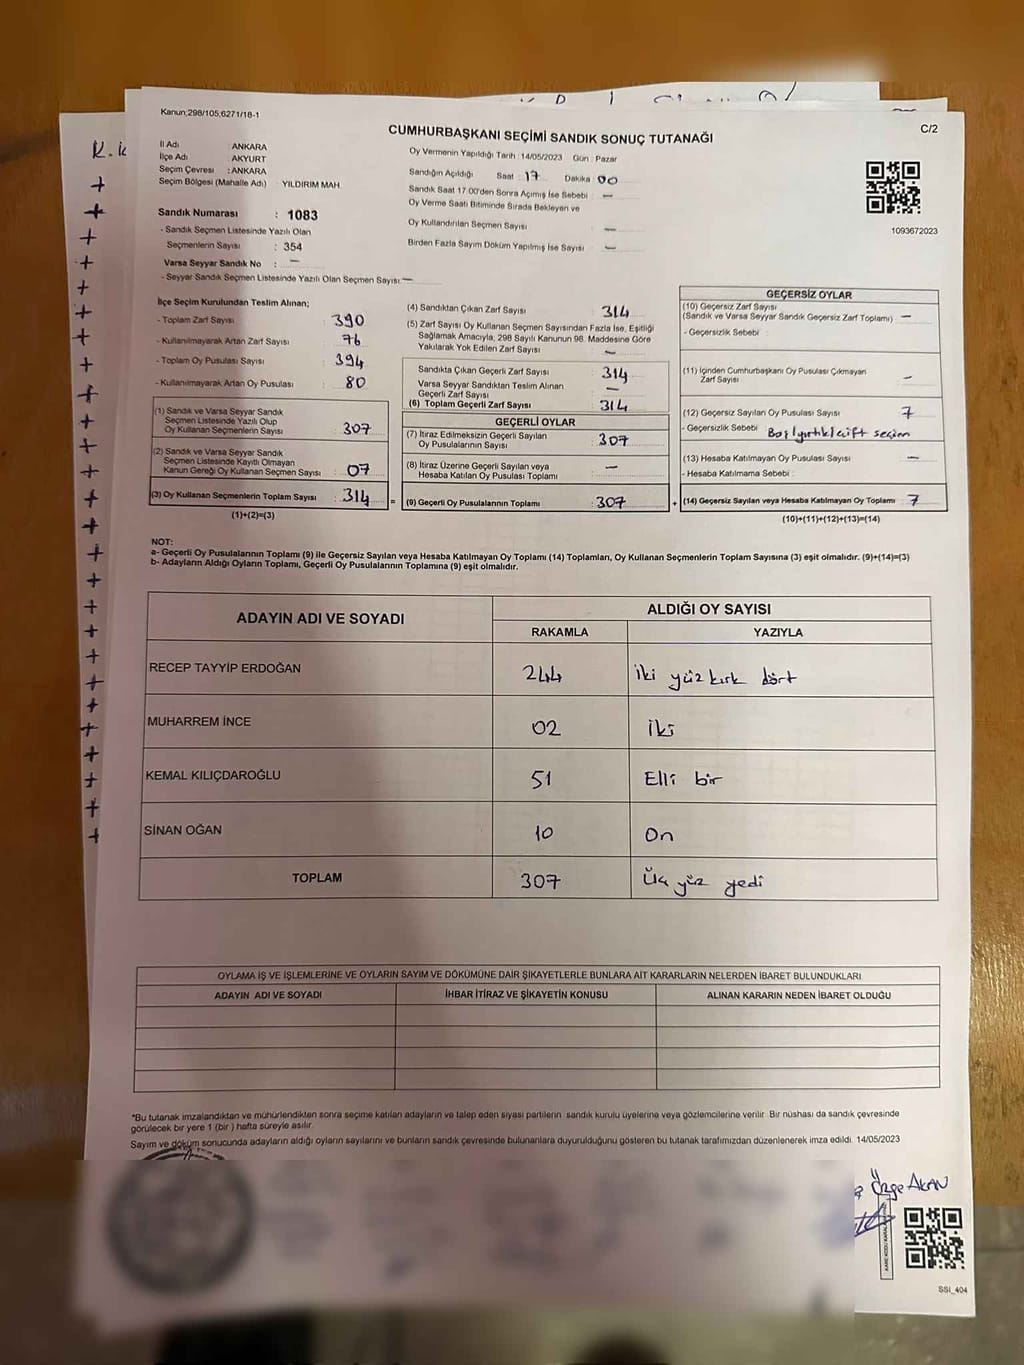 Kanun;298/105,6271/18-1
C/2
CUMHURBAŞKANI SEÇİMİ SANDIK SONUÇ TUTANAĞI
İl Adı : ANKARA
İlçe Adı : AKYURT
Seçim Çevresi : ANKARA
Seçim Bölgesi (Mahalle Adı) : YILDIRIM MAH.
Sandık Numarası : 1083
- Sandık Seçmen Listesinde Yazılı Olan
Seçmenlerin Sayısı : 354
Varsa Seyyar Sandık No : —
- Seyyar Sandık Seçmen Listesinde Yazılı Olan Seçmen Sayısı: —
Oy Vermenin Yapıldığı Tarih : 14/05/2023 Gün : Pazar
Sandığın Açıldığı Saat : 17 Dakika : 00
Sandık Saat 17:00'den Sonra Açımış İse Sebebi : —
Oy Verme Saati Bitiminde Sırada Bekleyen ve
Oy Kullandırılan Seçmen Sayısı : —
Birden Fazla Sayım Döküm Yapılmış İse Sayısı : —
1093672023
İlçe Seçim Kurulundan Teslim Alınan;
- Toplam Zarf Sayısı : 390
- Kullanılmayarak Artan Zarf Sayısı : 76
- Toplam Oy Pusulası Sayısı : 394
- Kullanılmayarak Artan Oy Pusulası : 80
(1) Sandık ve Varsa Seyyar Sandık
Seçmen Listesinde Yazılı Olup
Oy Kullanan Seçmenlerin Sayısı : 307
(2) Sandık ve Varsa Seyyar Sandık
Seçmen Listesinde Kayıtlı Olmayan
Kanun Gereği Oy Kullanan Seçmen Sayısı : 07
(3) Oy Kullanan Seçmenlerin Toplam Sayısı : 314 =
(1)+(2)=(3)
(4) Sandıktan Çıkan Zarf Sayısı : 314
(5) Zarf Sayısı Oy Kullanan Seçmen Sayısından Fazla İse, Eşitliği
Sağlamak Amacıyla, 298 Sayılı Kanunun 98. Maddesine Göre
Yakılarak Yok Edilen Zarf Sayısı : —
Sandıkta Çıkan Geçerli Zarf Sayısı : 314
Varsa Seyyar Sandıktan Teslim Alınan
Geçerli Zarf Sayısı : —
(6) Toplam Geçerli Zarf Sayısı : 314
GEÇERLİ OYLAR
(7) İtiraz Edilmeksizin Geçerli Sayılan
Oy Pusulalarının Sayısı : 307
(8) İtiraz Üzerine Geçerli Sayılan veya
Hesaba Katılan Oy Pusulası Toplamı : —
(9) Geçerli Oy Pusulalarının Toplamı : 307 +
GEÇERSİZ OYLAR
(10) Geçersiz Zarf Sayısı
(Sandık ve Varsa Seyyar Sandık Geçersiz Zarf Toplamı) : —
- Geçersizlik Sebebi :
(11) İçinden Cumhurbaşkanı Oy Pusulası Çıkmayan
Zarf Sayısı : —
(12) Geçersiz Sayılan Oy Pusulası Sayısı : 7
- Geçersizlik Sebebi : Boş/yırtık/çift seçim
(13) Hesaba Katılmayan Oy Pusulası Sayısı : —
- Hesaba Katılmama Sebebi :
(14) Geçersiz Sayılan veya Hesaba Katılmayan Oy Toplamı : 7
(10)+(11)+(12)+(13)=(14)
NOT:
a- Geçerli Oy Pusulalarının Toplamı (9) ile Geçersiz Sayılan veya Hesaba Katılmayan Oy Toplamı (14) Toplamları, Oy Kullanan Seçmenlerin Toplam Sayısına (3) eşit olmalıdır. (9)+(14)=(3)
b- Adayların Aldığı Oyların Toplamı, Geçerli Oy Pusulalarının Toplamına (9) eşit olmalıdır.
ADAYIN ADI VE SOYADI ALDIĞI OY SAYISI
RAKAMLA YAZIYLA
RECEP TAYYİP ERDOĞAN 244 iki yüz kırk dört
MUHARREM İNCE 02 iki
KEMAL KILIÇDAROĞLU 51 Elli bir
SİNAN OĞAN 10 On
TOPLAM 307 Üç yüz yedi
OYLAMA İŞ VE İŞLEMLERİNE VE OYLARIN SAYIM VE DÖKÜMÜNE DAİR ŞİKAYETLERLE BUNLARA AİT KARARLARIN NELERDEN İBARET BULUNDUKLARI
ADAYIN ADI VE SOYADI İHBAR İTİRAZ VE ŞİKAYETİN KONUSU ALINAN KARARIN NEDEN İBARET OLDUĞU
*Bu tutanak imzalandıktan ve mühürlendikten sonra seçime katılan adayların ve talep eden siyasi partilerin sandık kurulu üyelerine veya gözlemcilerine verilir. Bir nüshası da sandık çevresinde
görülecek bir yere 1 (bir) hafta süreyle asılır.
Sayım ve döküm sonucunda adayların aldığı oyların sayılarını ve bunların sandık çevresinde bulunanlara duyurulduğunu gösteren bu tutanak tarafımızdan düzenlenerek imza edildi. 14/05/2023
Özge AKAN
SSI_404